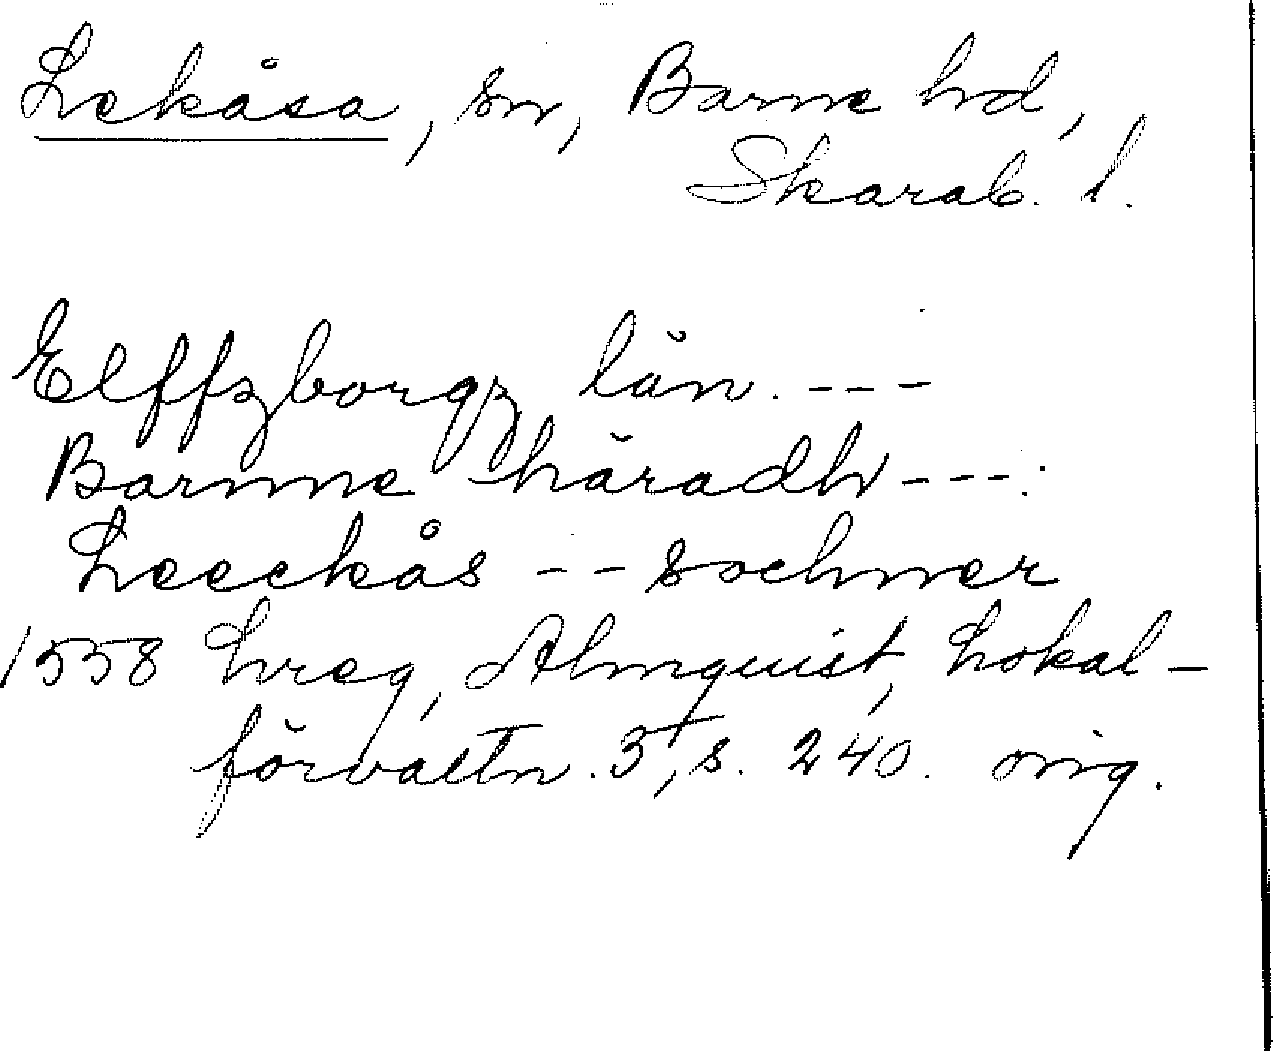 Lekåsa, sn, Barne hd,
Skarab. l.
Elffzborgz län. ---
Barnne häradh ---.
Leeckås -- sochner
1558 Lvreg, Almquist, Lokal-
förvaltn. 3, s. 240. orig.